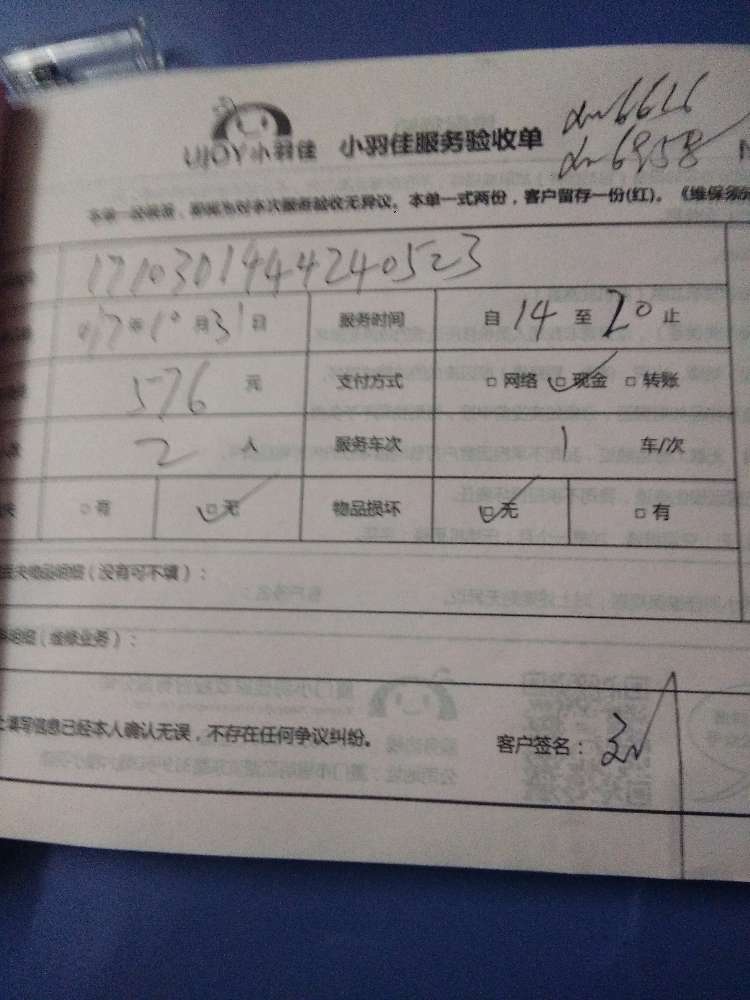 UJOY小羽佳 小羽佳服务验收单
dn6616
dn6958
对本次服务验收无异议。本单一式两份，客户留存一份(红)。《维保须知
17103019444240523
17年10月31日 服务时间 自14至20止
576元 支付方式 □网络 □现金 □转账
2人 服务车次 1车/次
□有 □无 物品损坏 □无 □有
失物品明细（没有可不填）：
明细（维修业务）：
上填写信息已经本人确认无误，不存在任何争议纠纷。
客户签名：